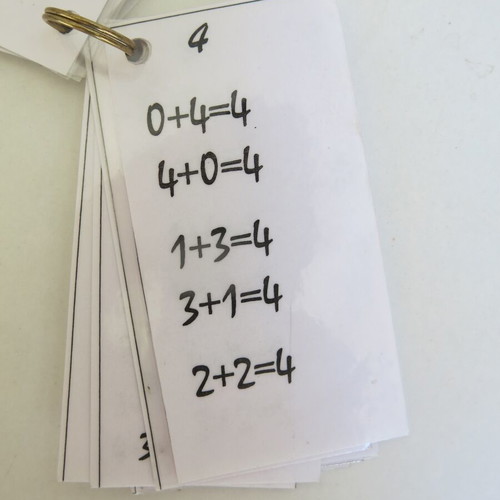 4
0+4=4
4+0=4
1+3=4
3+1=4
2+2=4
3